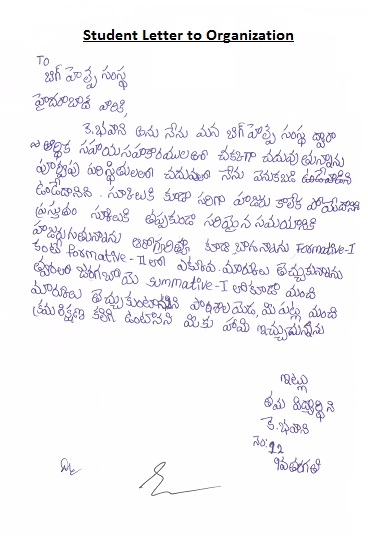 Student Letter to Organization
To
బిగ్ హెల్ప్ సంస్థ
హైదరాబాద్ వారికి,
కె.భవాని అను నేను మన బిగ్ హెల్ప్ సంస్థ ద్వారా
ఆర్థిక సహాయసహకారములతో చక్కగా చదువుతున్నాను
పూర్వపు పరిస్థితులలో చదువులో నేను వెనుకబడి ఉండేదానిని
ఉండేదానిని. స్కూలుకి కూడా సరిగా హాజరు కాలేక పోయేదాన్ని
ప్రస్తుతం స్కూలుకి తప్పకుండా సరియైన సమయానికి
హాజరగుతున్నాను ఆరోగ్యరీత్యా కూడా బాగున్నాను Formative-I
కంటే Formative-II లో ఎక్కువ మార్కులు తెచ్చుకున్నాను
త్వరలో జరగబోయే Summative-I లో కూడా మంచి
మార్కులు తెచ్చుకుంటానని పాఠశాలయెడ, మీ పట్ల మంచి
క్రమశిక్షణ కలిగి ఉంటానని మీకు హామీ ఇచ్చుచున్నాను
ఇట్లు
తమ విద్యార్థిని
కె.భవాని
నెం: 22
9వ తరగతి